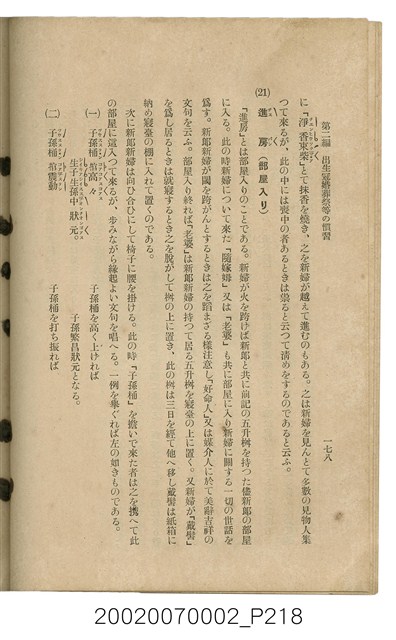 第二編　出生冠婚葬祭等の慣習
一七八
に「淨香束柴」とて抹香を燒き、之を新婦が越えて進むのもある。之は新婦を見んとて多數の見物人集
つて來るが、此の中には喪中の者あるときは祟ると云つて清めをするのであると云ふ。
(21)　進房（部屋入り）
「進房」とは部屋入りのことである。新婦が火を跨げば新郎と共に前記の五升桝を持つた儘新郎の部屋
に入る。此の時新婦について來た「隨嫁嫺」又は「老婆」も共に部屋に入り新婦に關する一切の世話を
爲す。新郎新婦が閾を跨がんとするときは之を蹈まざる樣注意し「好命人」又は媒介人に於て美辭吉祥の
文句を云ふ。部屋入り終れば「老婆」は新郎等の持つて居る五升桝を寢臺の上に置く。又新婦が「戴髻」
を爲し居るときは就寢するとき之を脫がして桝の上に置き、此の桝は三日を經て他へ移し戴髻は紙箱に
納め寢臺の棚に入れて置くのである。
次に新郎新婦は向ひ合ひにして椅子に腰を掛ける。此の時「子孫桶」を擔いで來た者は之を携へて此
の部屋に這入つて來るが、步みながら緣起よい文句を唱へる。一例を擧ぐれば左の如きものである。
(一)　子孫桶　抬高々　子孫桶を高く上ければ
生子生孫中狀元。　子孫繁昌狀元となる。
(二)　子孫桶　抬震動　子孫桶を打ち振れば
20020070002_P218